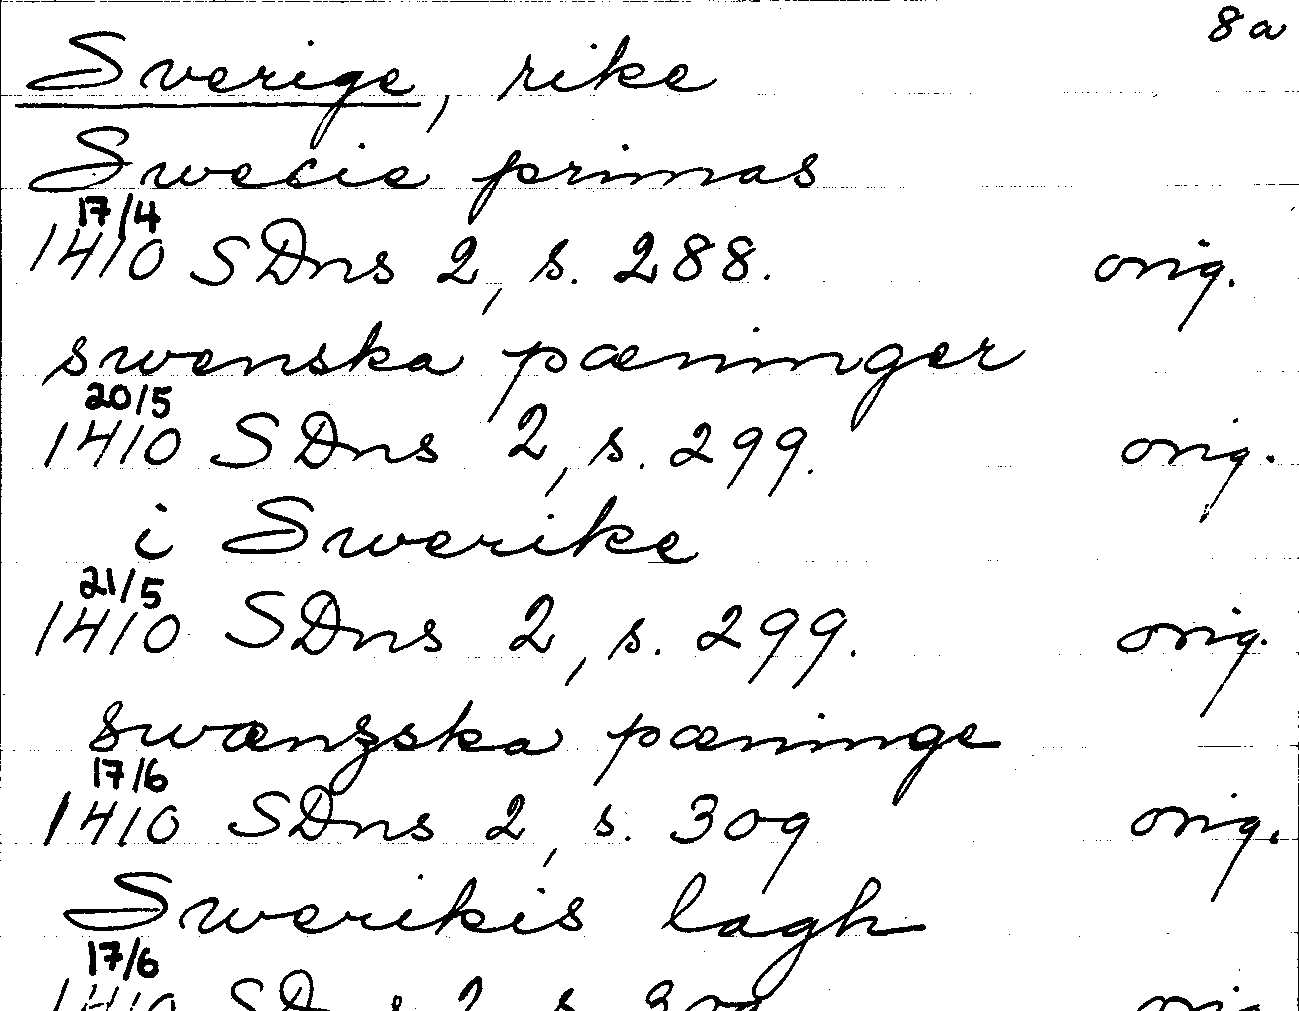 8a
Sverige, rike
Swecie primas
17/4
1410 SDns 2, s. 288. orig.
swenska pæninger
20/5
1410 SDns 2, s. 299. orig.
i Swerike
21/5
1410 SDns 2, s. 299. orig.
swænzska pæninge
17/6
1410 SDns 2, s. 309 orig.
Swerikis lagh
17/6
1410 SDns 2, s. 309 orig.